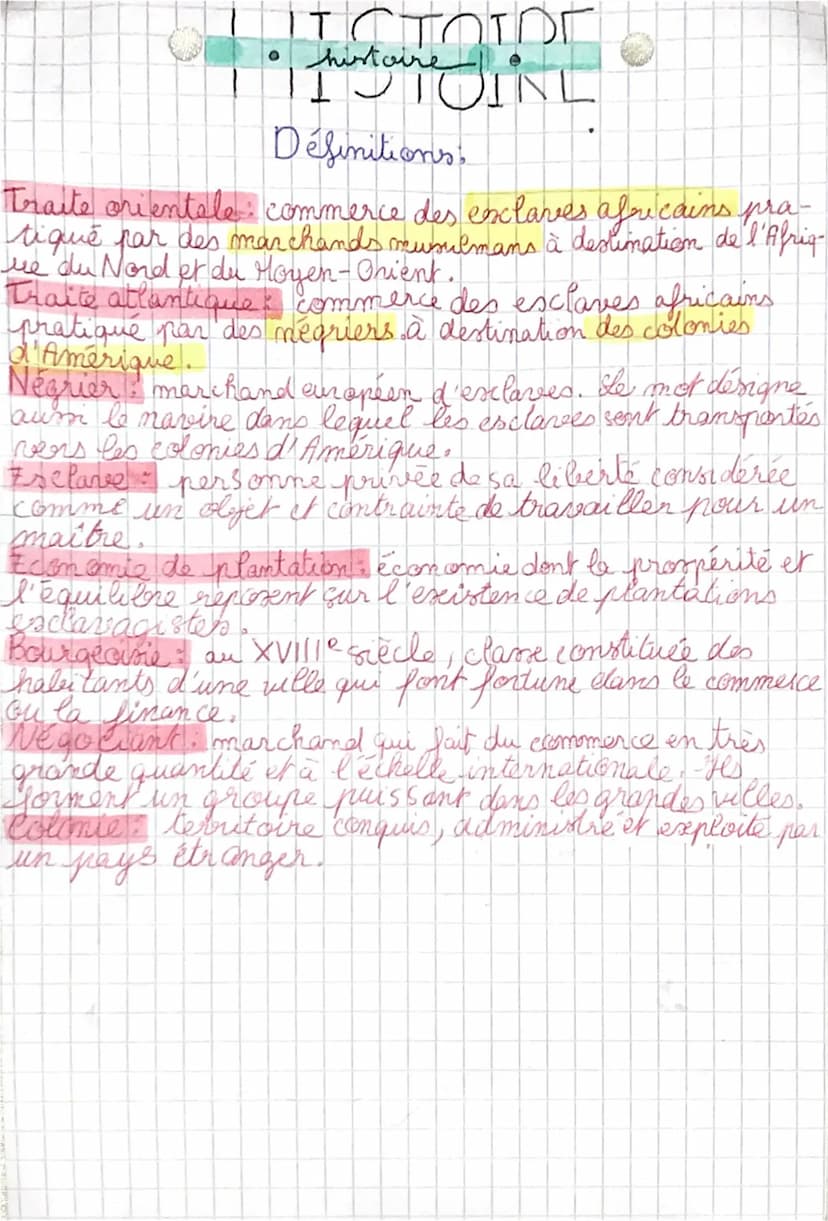 HISTOIRE
histoire
Définitions:
Traite orientale: commerce des esclaves africains pra-
tiqué par des marchands musulmans à destination de l'Afriq-
ue du Nord et du Moyen-Orient.
Traite atlantique: commerce des esclaves africains
pratiqué par des négriers à destination des colonies
d'Amérique.
Négrier: marchand européen d'esclaves. Le mot désigne
aussi le navire dans lequel les esclaves sont transportés
vers les colonies d'Amérique.
Esclave: personne privée de sa liberté considérée
comme un objet et contrainte de travailler pour un
maître.
Économie de plantation: économie dont la prospérité et
l'équilibre reposent sur l'existence de plantations
esclavagistes.
Bourgeoisie: au XVIIIe siècle, classe constituée des
habitants d'une ville qui font fortune dans le commerce
ou la finance.
Négociant: marchand qui fait du commerce en très
grande quantité et à l'échelle internationale. Ils
forment un groupe puissant dans les grandes villes.
Colonie: territoire conquis, administré et exploité par
un pays étranger.